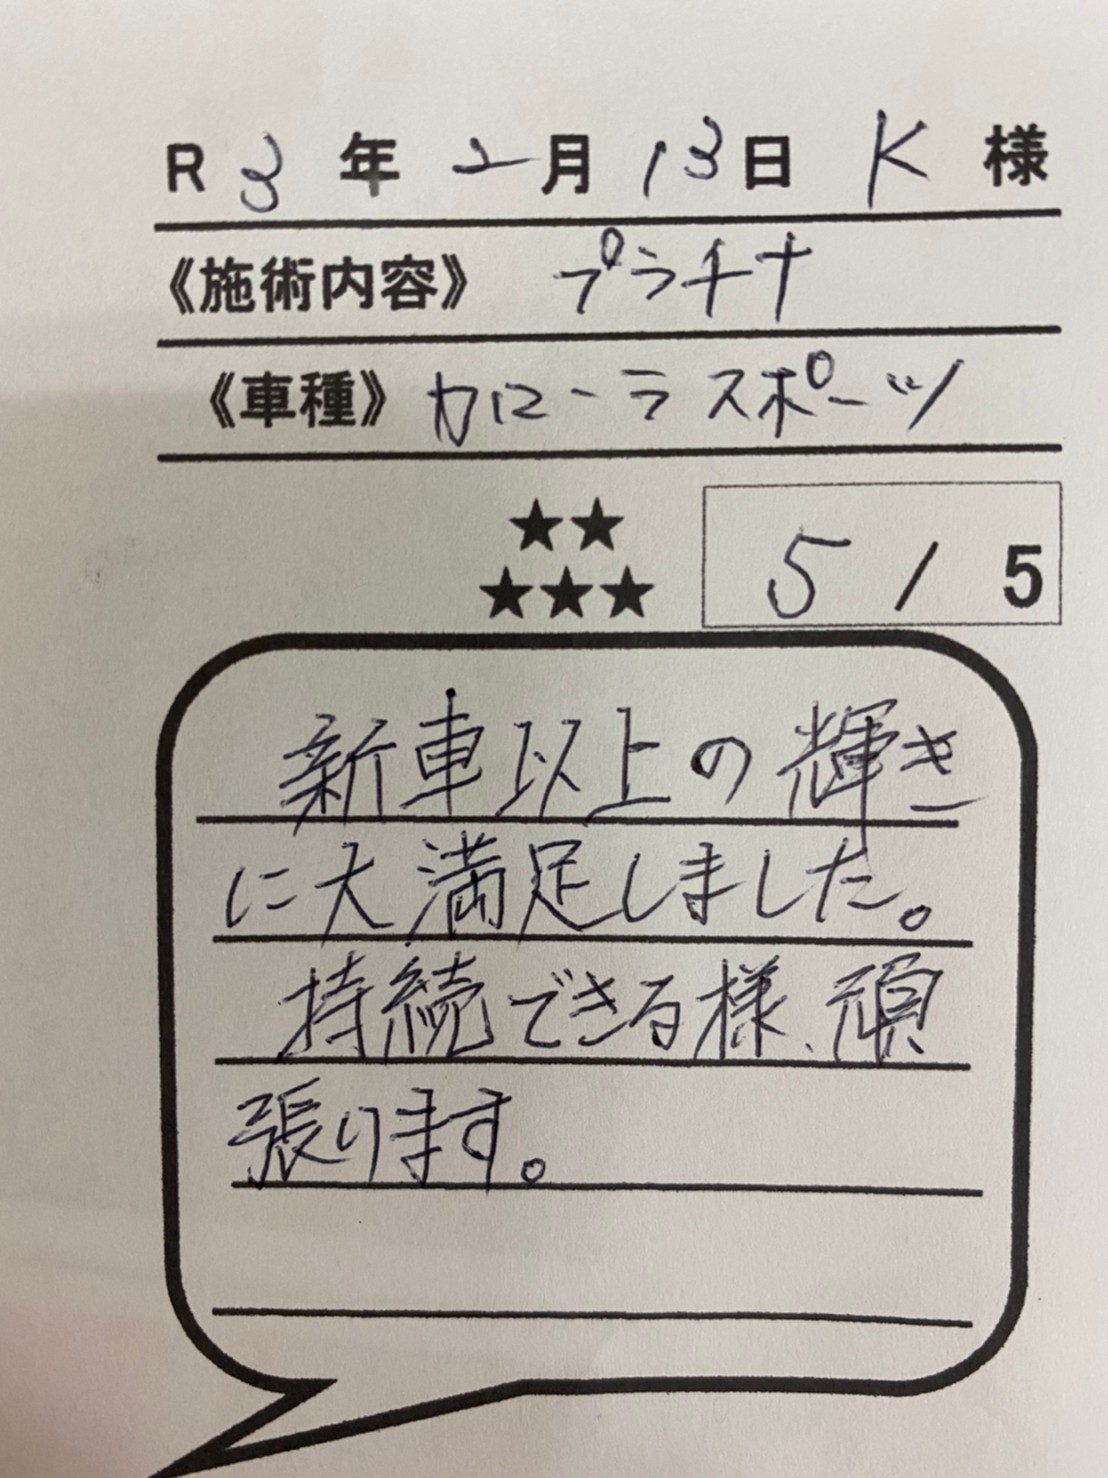 R 3 年 2 月 13 日 K 様
《施術内容》 プラチナ
《車種》 カローラ スポーツ
★★
★★★
5 / 5
新車以上の輝き
に大満足しました。
持続できる様、頑
張ります。